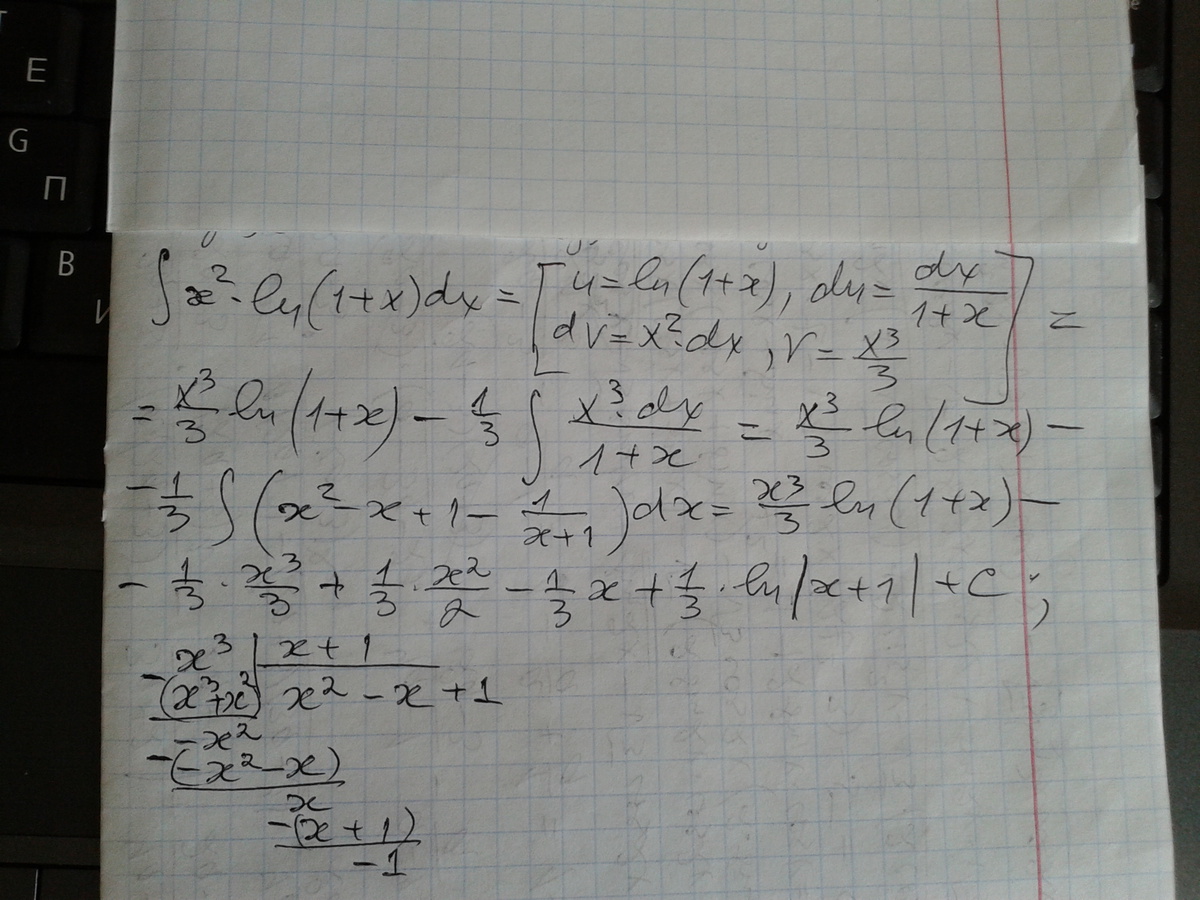 Е
G
П
В
∫ x² · ln(1+x)dx = [ u = ln(1+x), du = dx/(1+x)
dv = x² · dx, v = x³/3 ] =
= x³/3 ln(1+x) − 1/3 ∫ x³ · dx/(1+x) = x³/3 ln(1+x) −
− 1/3 ∫ (x² − x + 1 − 1/(x+1)) dx = x³/3 ln(1+x) −
− 1/3 · x³/3 + 1/3 · x²/2 − 1/3 x + 1/3 · ln|x+1| + C ;
− x³ | x + 1
(x³+x²) | x² − x + 1
−x²
−(−x² − x)
x
−(x + 1)
−1